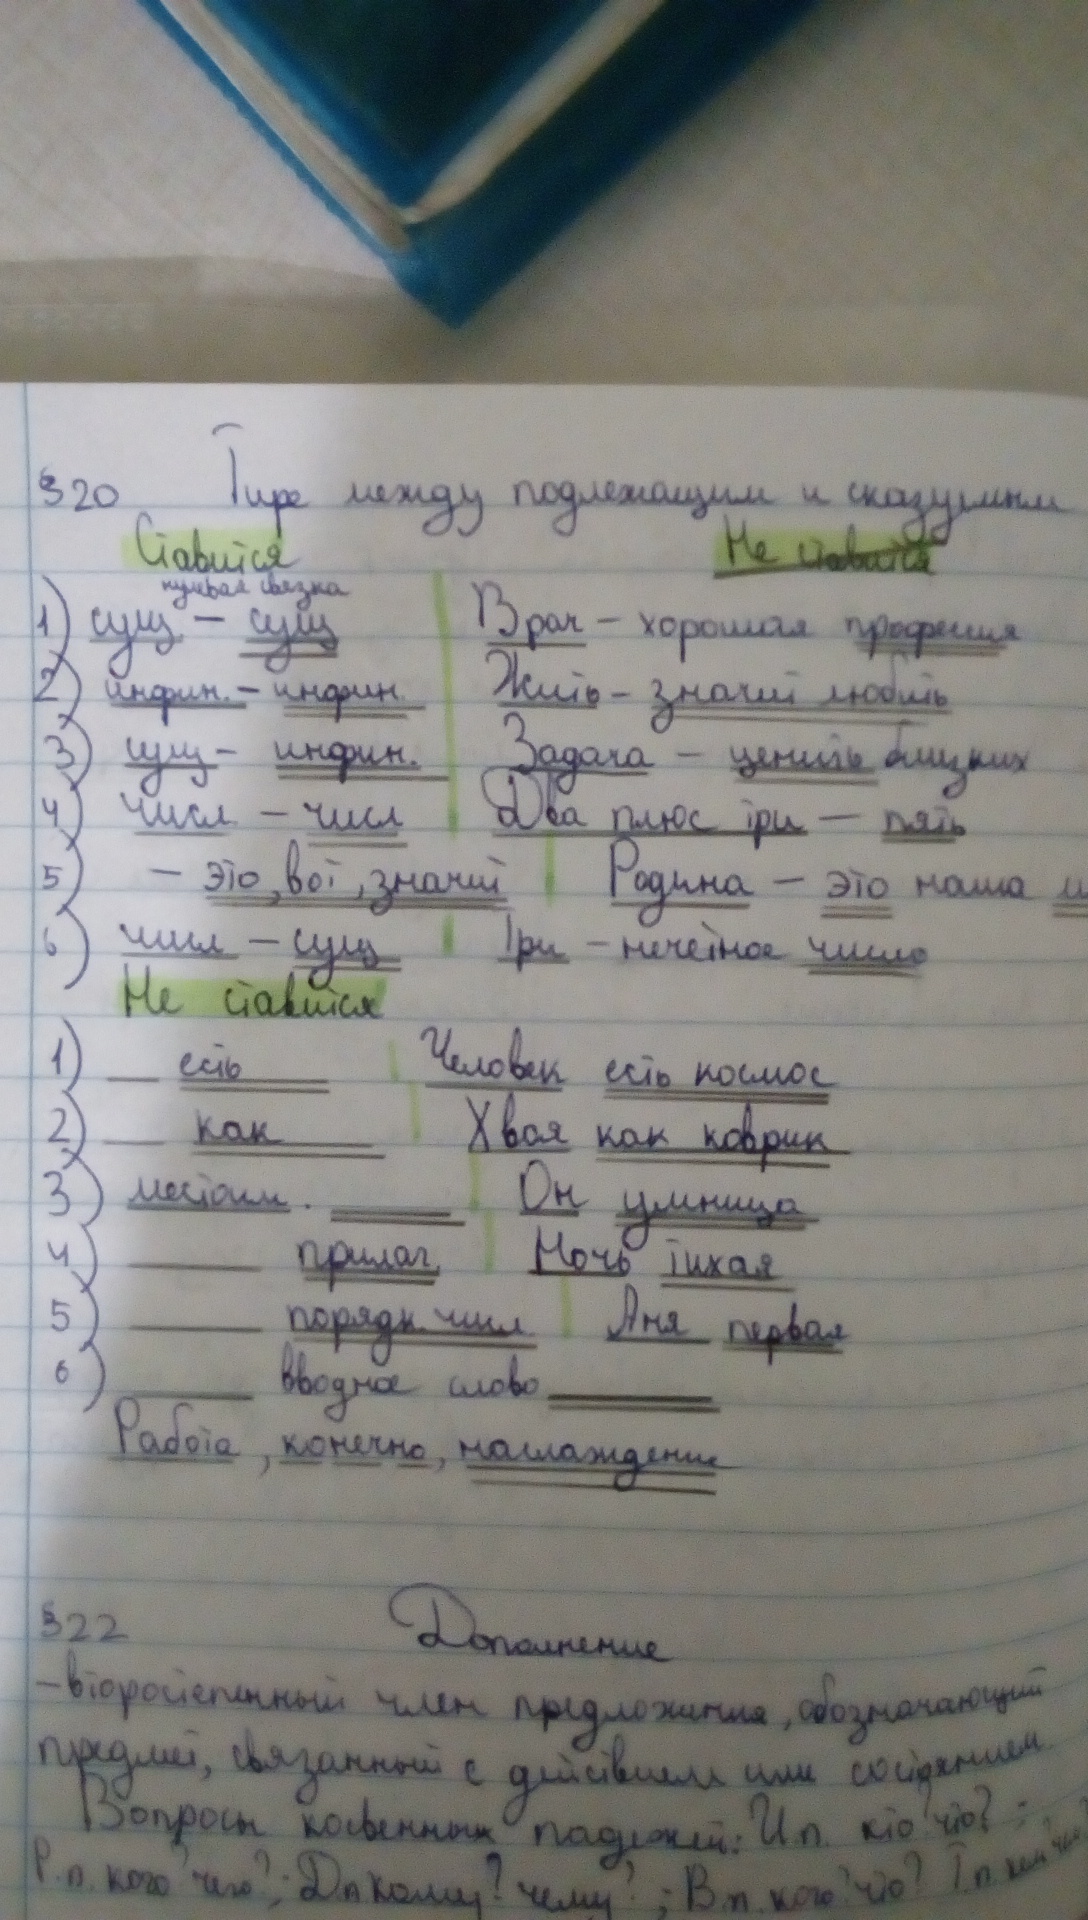 §20 Тире между подлежащим и сказуемым
Ставится Не ставится
нулевая связка
1) сущ – сущ Врач – хорошая профессия
2) инфин. – инфин. Жить – значит любить
3) сущ – инфин. Задача – ценить близких
4) числ – числ Два плюс три – пять
5) – это, вот, значит Родина – это наша
6) числ – сущ Три – нечётное число
Не ставится
1) есть Человек есть космос
2) как Хвоя как коврик
3) местоим. Он умница
4) прилаг. Ночь тихая
5) порядк. числ Аня первая
6) вводное слово
Работа, конечно, наслаждение
§22 Дополнение
– второстепенный член предложения, обозначающий
предмет, связанный с действием или состоянием.
Вопросы косвенных падежей: И.п. кто? что? ;
Р.п. кого? чего? ; Д.п кому? чему? ; В.п. кого? что? Т.п. кем? чем?